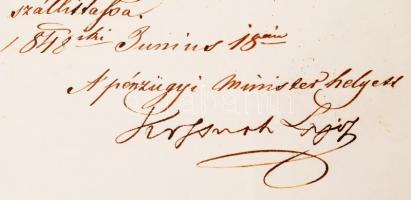 szállittassa.
1848iki Junius 18án
A pénzügyi Minister helyett
Kossuth Lajos